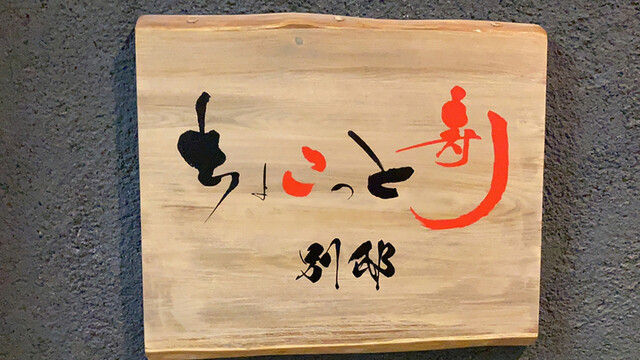 ちょこっと寿
別邸